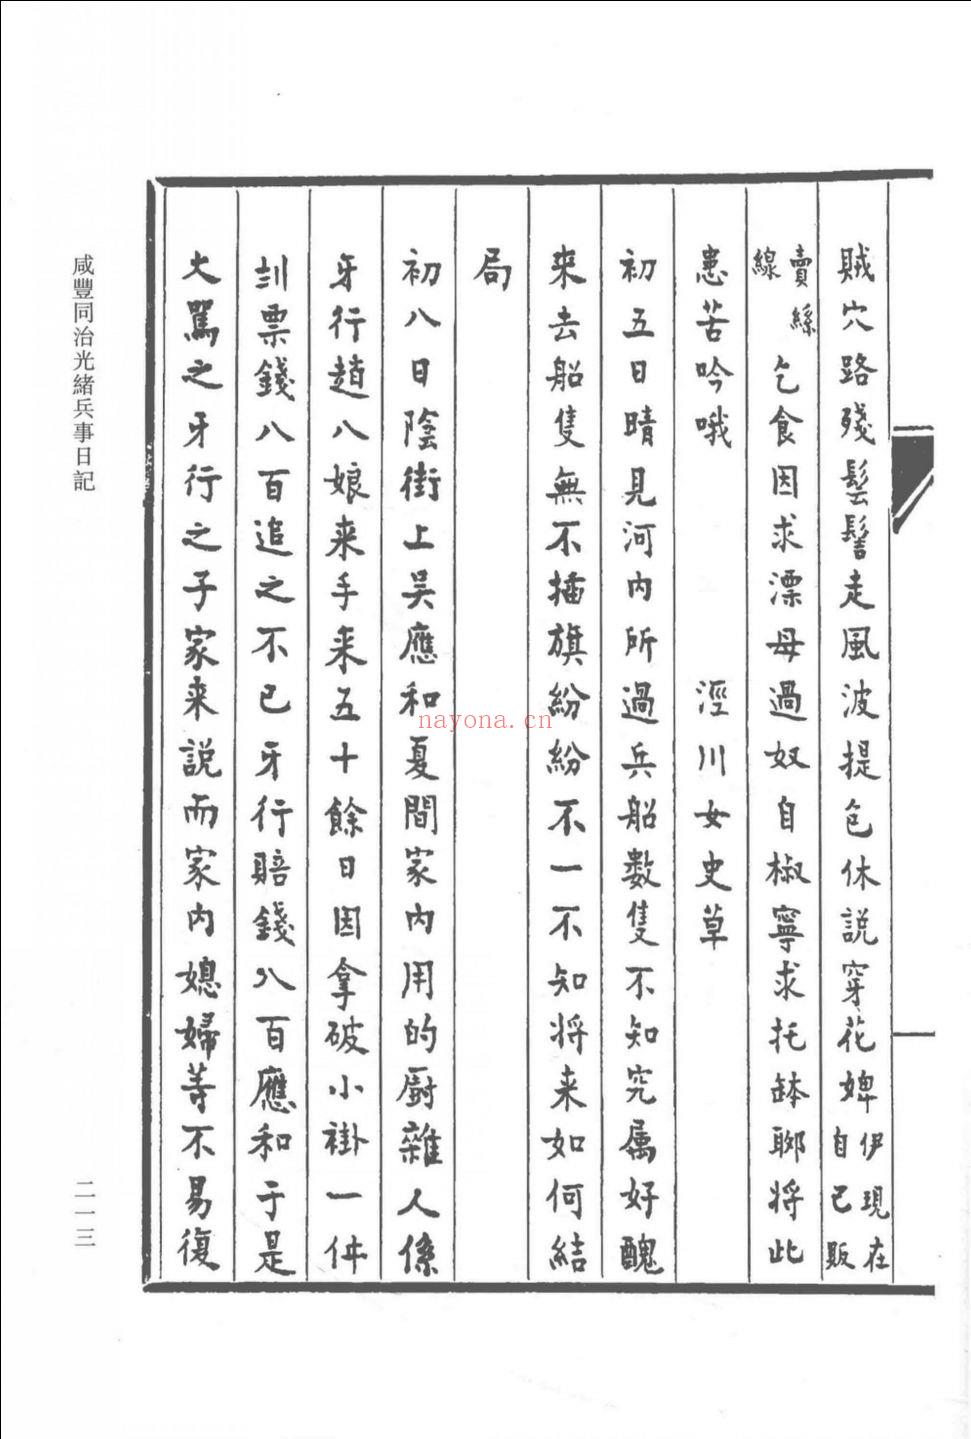 賊穴路殘髻髻走風波提包休説穿花婢伊現在自己販
賣絲線乞食因求漂母過奴自椒寧求托缽聊將此
患苦吟哦 涇川女史草
初五日晴見河内所過兵船數隻不知究属好醜
来去船隻無不插旗紛紛不一不知將来如何結
局
初八日陰街上吴應和夏間家内用的厨雜人係
牙行趙八娘来手来五十餘日因拿破小褂一件
訓票錢八百追之不已牙行賠錢八百應和于是
大罵之牙行之子家来説而家内媳婦等不易復
咸豐同治光緒兵事日記
二一三
nayona.cn